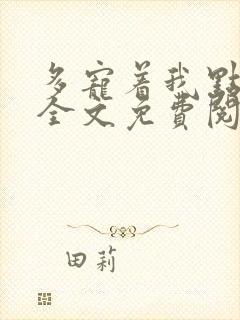 多寵着我點
全文免費閱
田莉